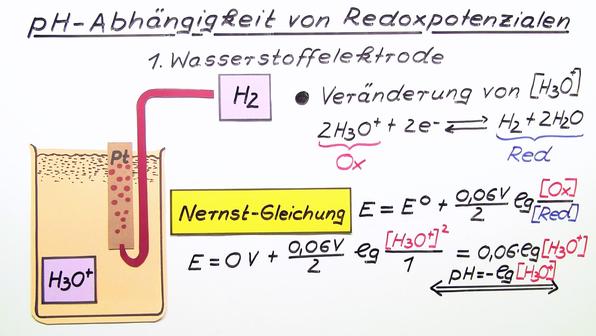 pH-Abhängigkeit von Redoxpotenzialen
1. Wasserstoffelektrode
H₂
• Veränderung von [H₃O⁺]
2H₃O⁺ + 2e⁻ ⇌ H₂ + 2H₂O
Ox
Red
Pt
Nernst-Gleichung
E = E⁰ + 0,06V/2 lg [Ox]/[Red]
E = 0V + 0,06V/2 lg [H₃O⁺]²/1 = 0,06·lg[H₃O⁺]
pH=-lg[H₃O⁺]
H₃O⁺